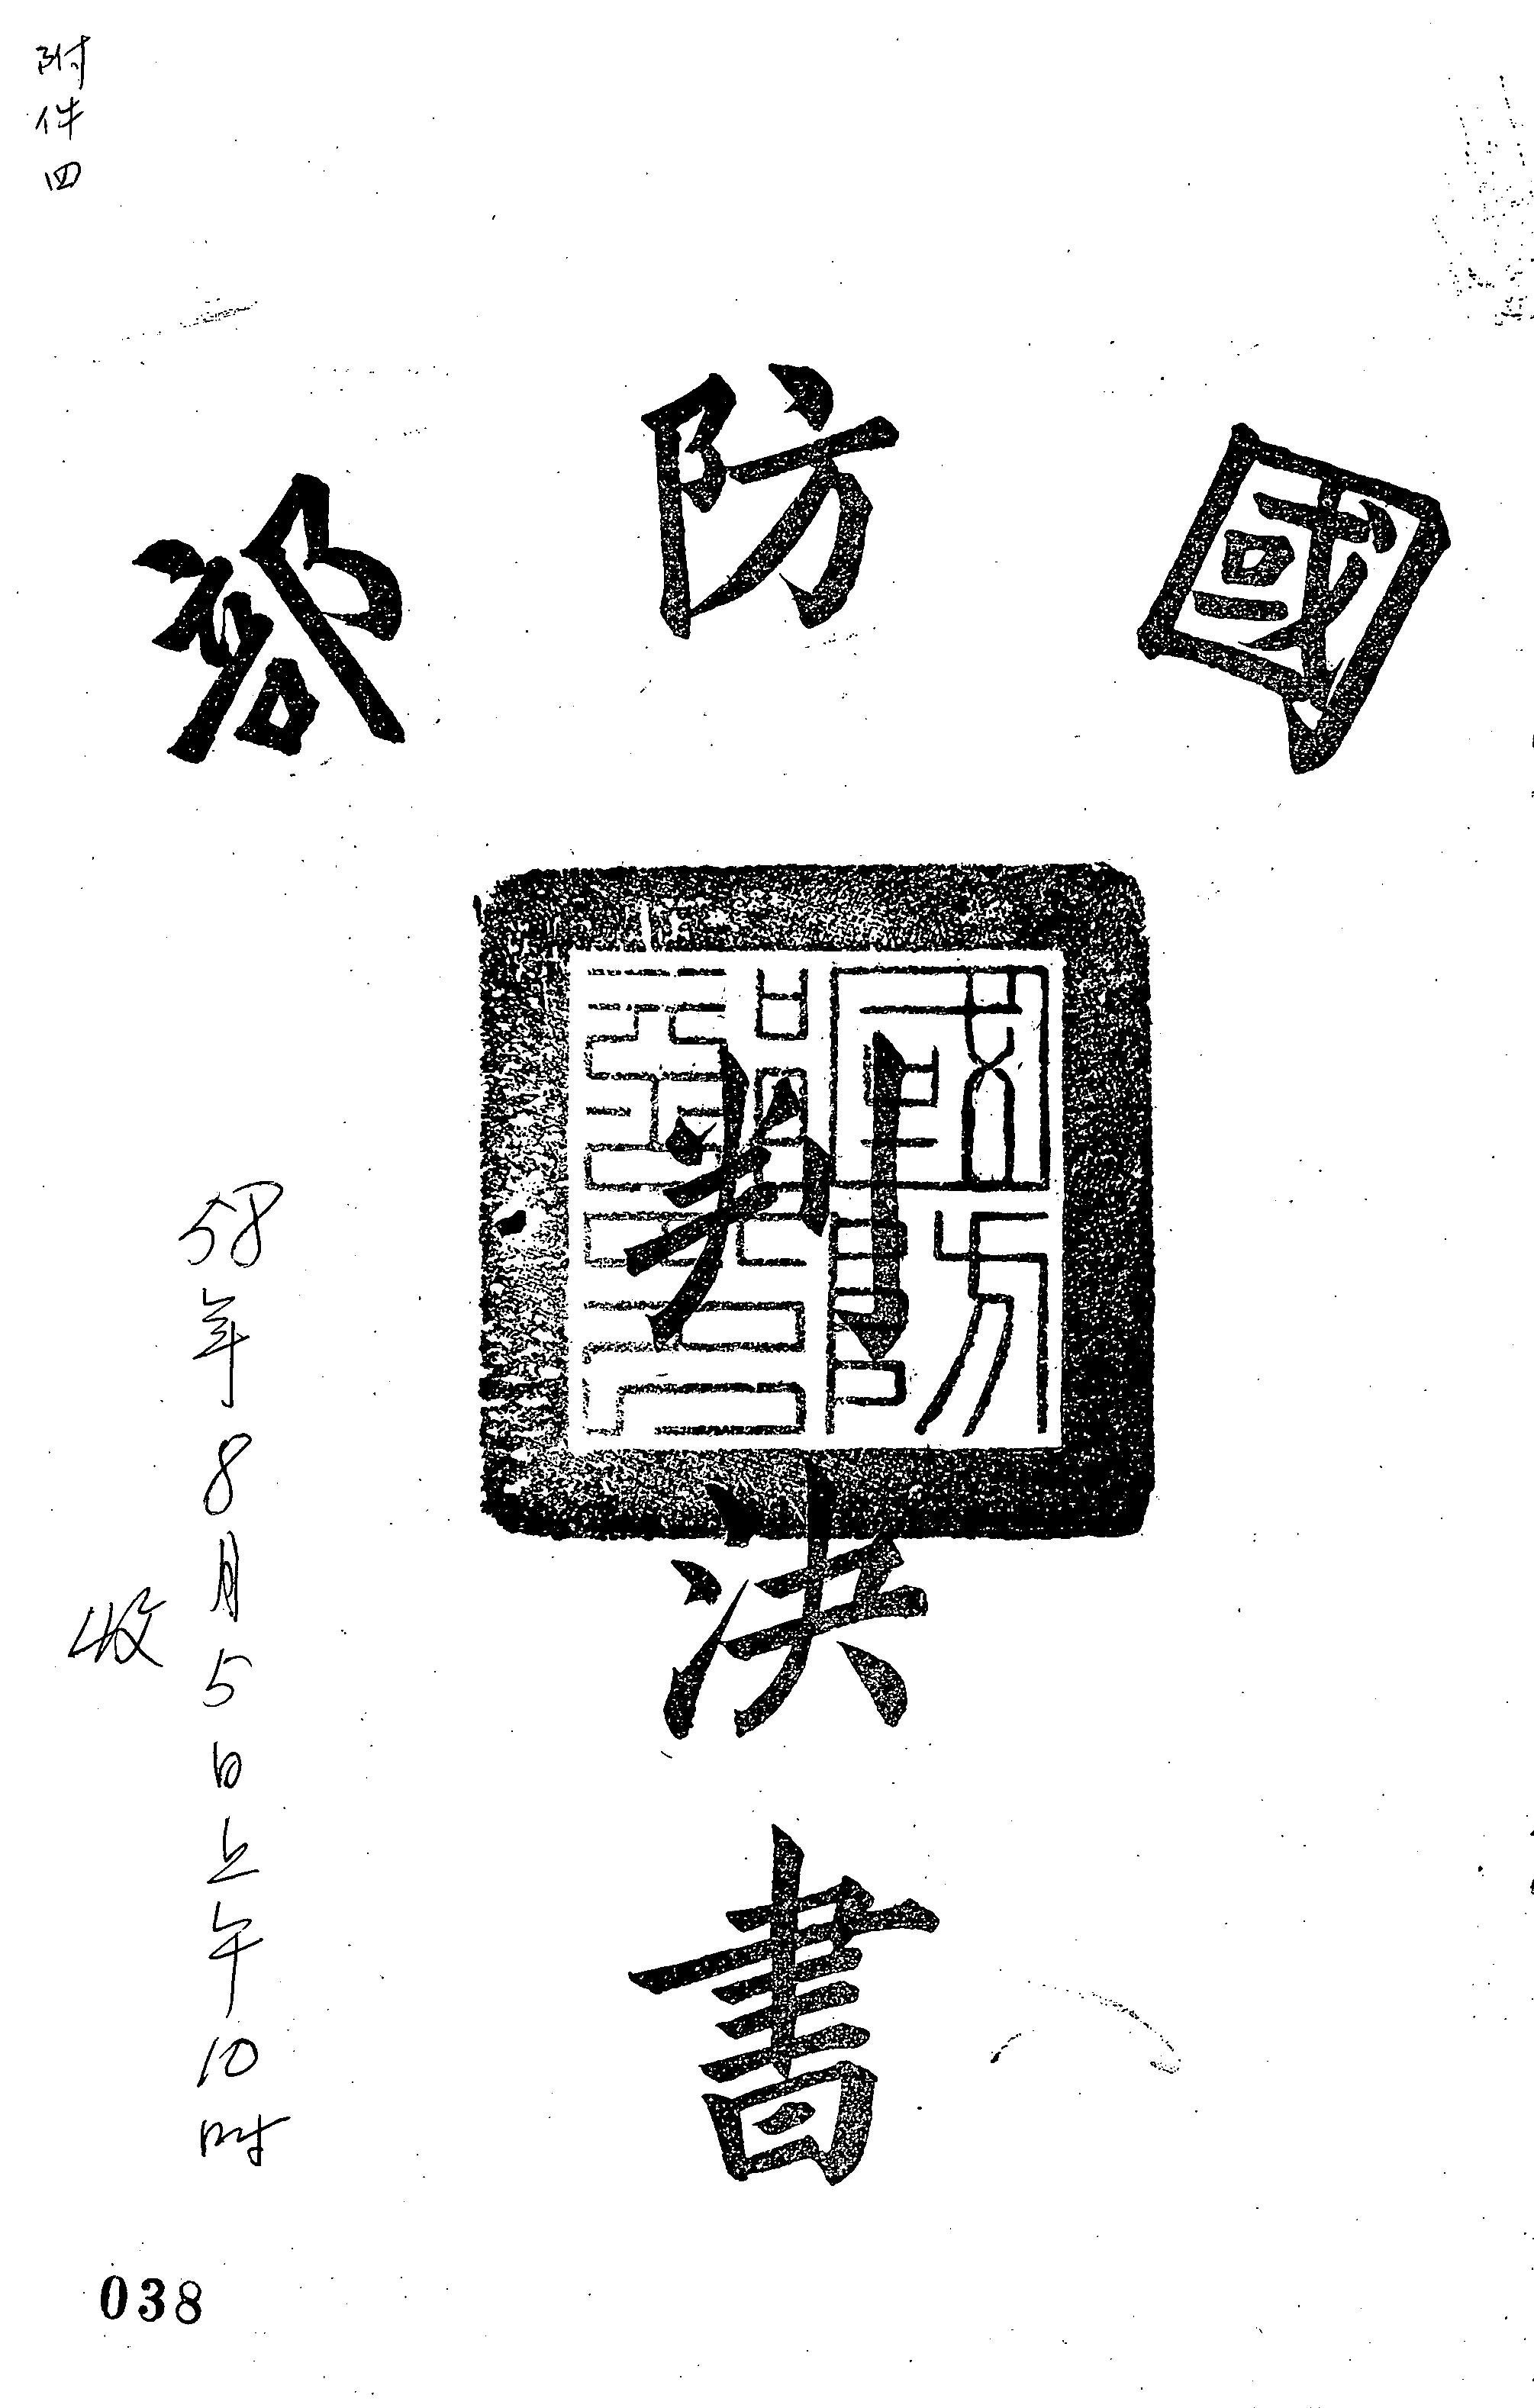 附件四
國防部
判決書
58年8月5日上午10時
收
038